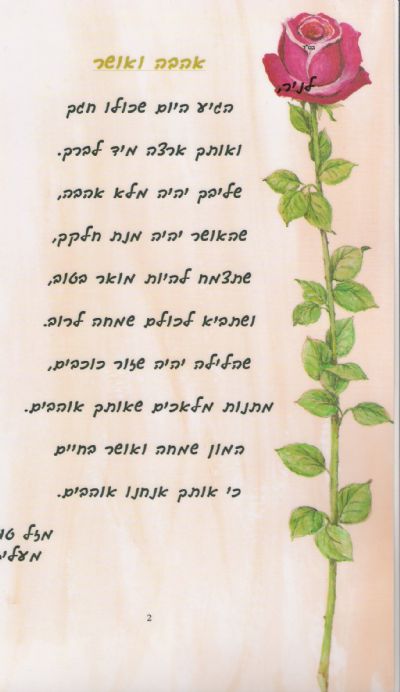 בס"ד
לניר,
אהבה ואושר
הגיע היום שכולו חגך
ואותך ארצה מיד לברך.
שליבך יהיה מלא אהבה,
שהאושר יהיה מנת חלקך,
שתצמח להיות מואר בטוב,
ושתביא לכולם שמחה לרוב.
שהלילה יהיה שזור כוכבים,
מתנות מלאכים שאותך אוהבים.
המון שמחה ואושר בחיים
כי אותך אנחנו אוהבים.
מזל טו
מעלי
2